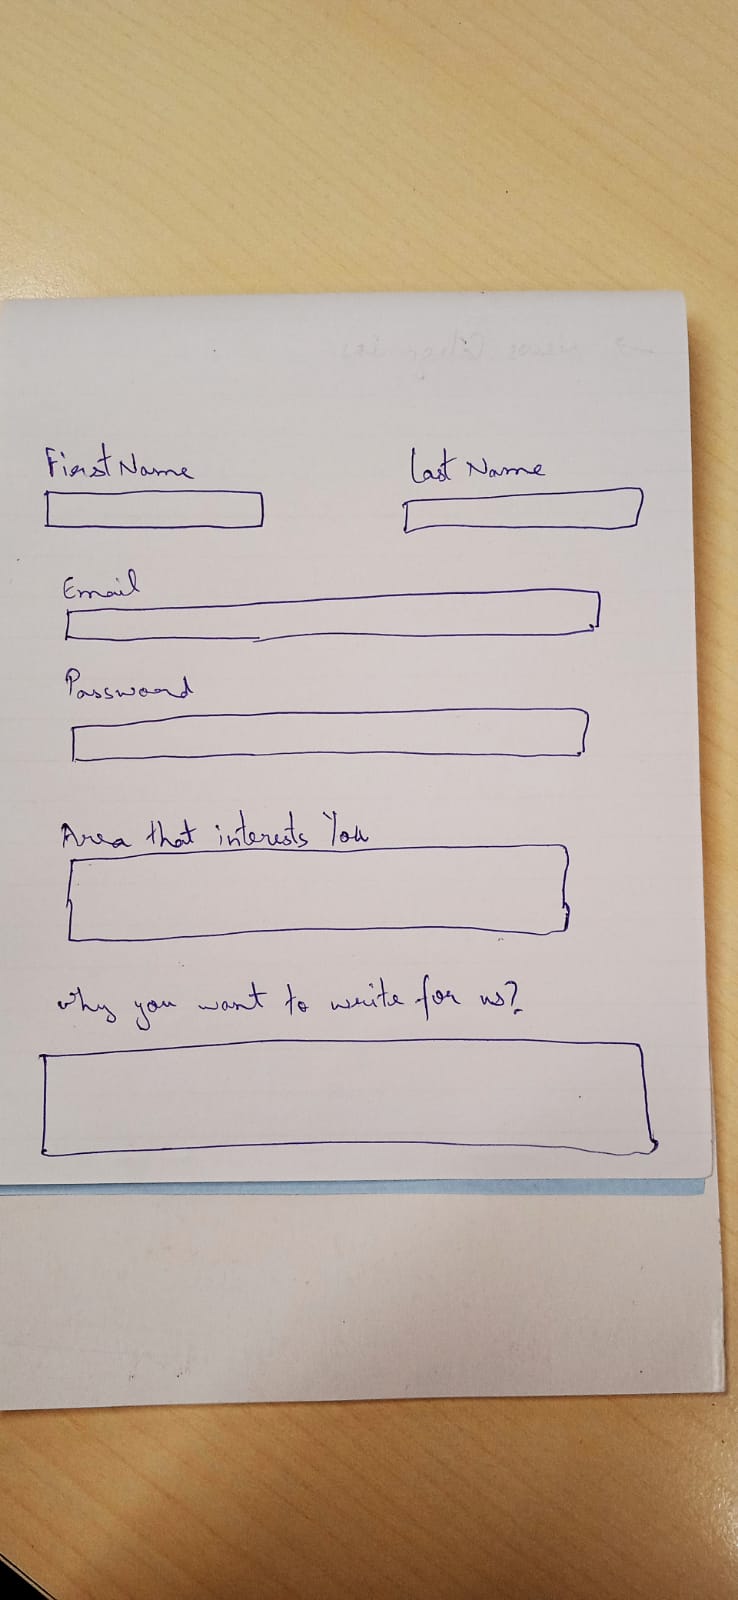 First Name Last Name
Email
Password
Area that interests You
Why you want to write for us?